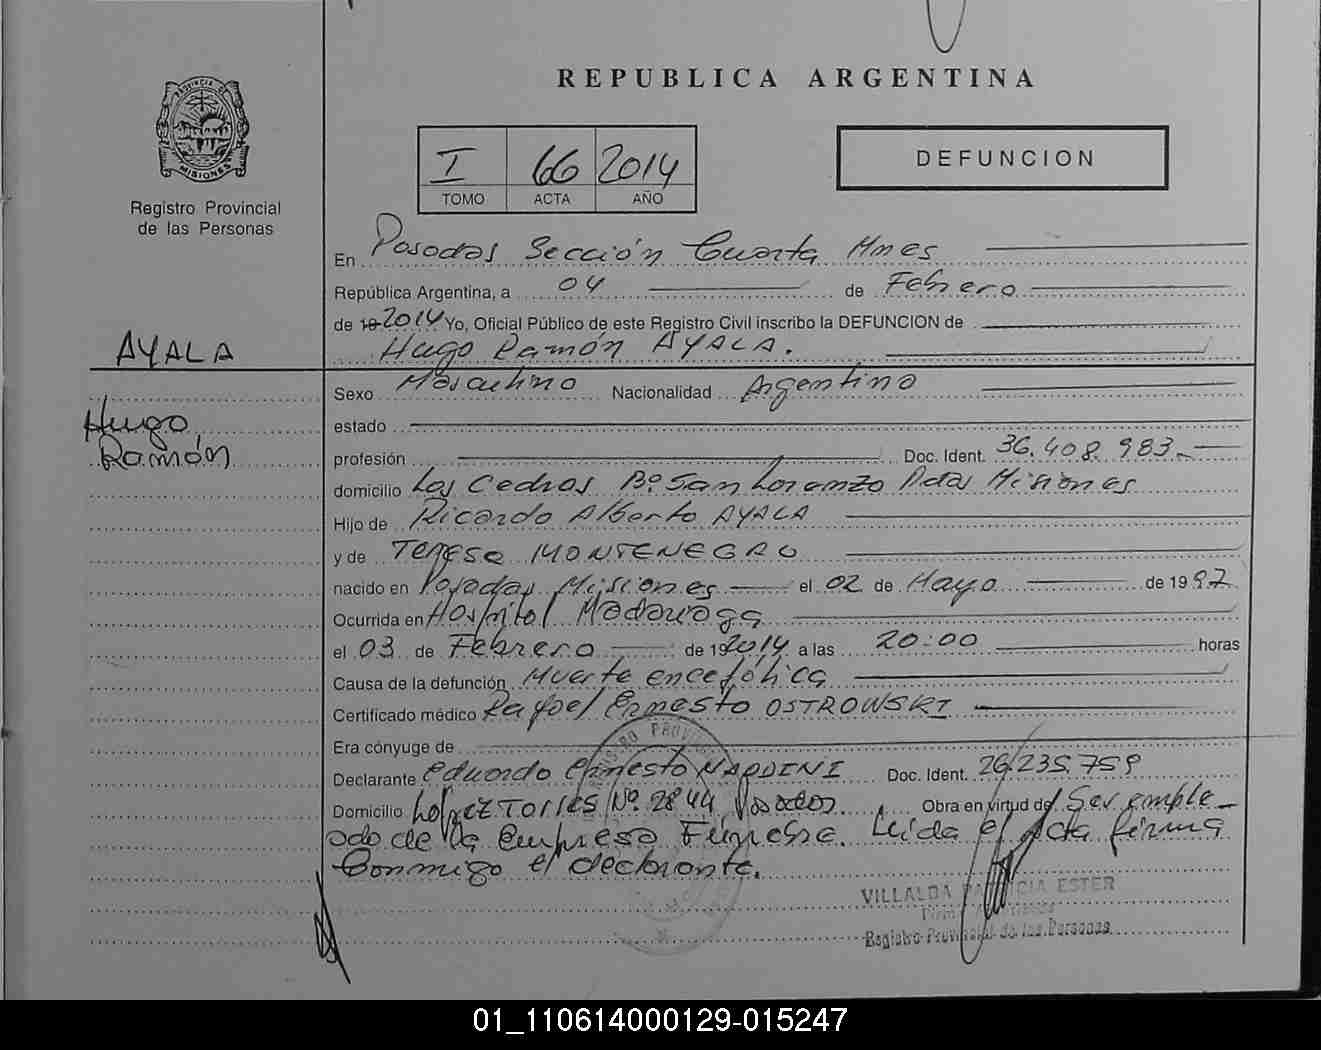 REPUBLICA ARGENTINA
PROVINCIA DE MISIONES
Registro Provincial
de las Personas
I 66 2014
TOMO ACTA AÑO
DEFUNCION
En Posadas Sección Cuarta Mnes
República Argentina, a 04 de Febrero
de 19 2014 Yo, Oficial Público de este Registro Civil inscribo la DEFUNCION de
Hugo Ramón AYALA.
AYALA
Hugo
Ramón
Sexo Masculino Nacionalidad Argentino
estado
profesión Doc. Ident. 36.408.983.-
domicilio Los Cedros Bº. San Lorenzo Pdas Misiones
Hijo de Ricardo Alberto AYALA
y de Teresa MONTENEGRO
nacido en Posadas Misiones el 02 de Mayo de 1997
Ocurrida en Hospital Madariaga
el 03 de Febrero de 19 2014 a las 20:00 horas
Causa de la defunción Muerte encefálica
Certificado médico Rafael Ernesto OSTROWSKI
Era cónyuge de
Declarante Eduardo Ernesto NARDINI Doc. Ident. 26.235.759
Domicilio López Torres Nº. 2844 Posadas. Obra en virtud de Ser emple-
ado de la Empresa Fúnebre. Leida el Acta firma
Conmigo el declarante.
VILLALBA PATRICIA ESTER
Registro Provincial de las Personas
01_110614000129-015247